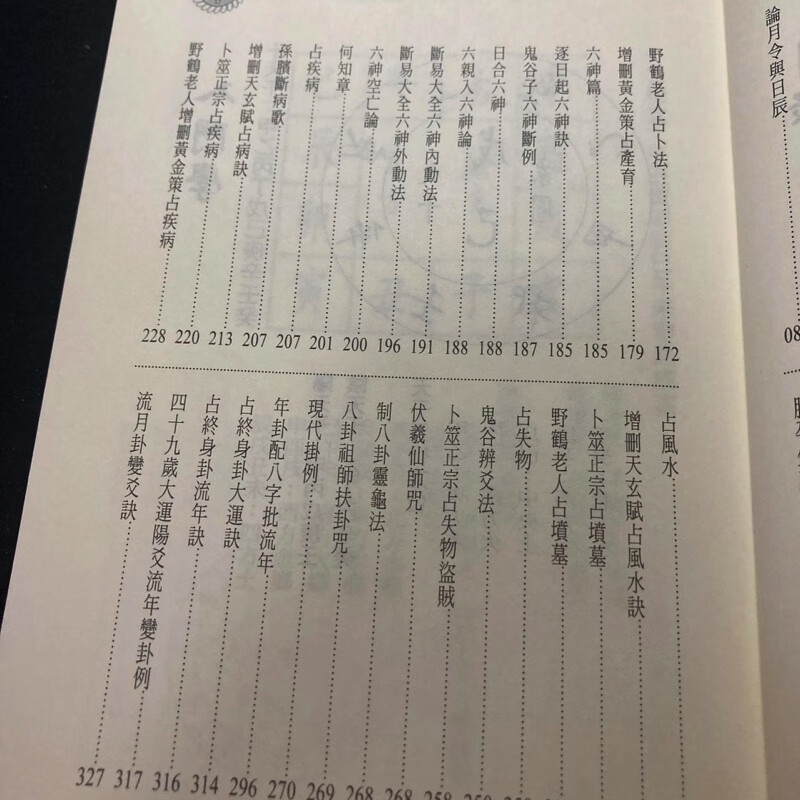 論月令與日辰
08
野鶴老人占卜法 172
增刪黃金策占產育 179
六神篇 185
逐日起六神訣 185
鬼谷子六神斷例 187
日合六神 188
六親入六神論 188
斷易大全六神內動法 191
斷易大全六神外動法 196
六神空亡論 200
何知章 201
占疾病 207
孫臏斷病歌 207
增刪天玄賦占病訣 213
卜筮正宗占疾病 220
野鶴老人增刪黃金策占疾病 228
占風水
增刪天玄賦占風水訣
卜筮正宗占墳墓
野鶴老人占墳墓
占失物
鬼谷辨爻法
卜筮正宗占失物盜賊 258
伏羲仙師咒 268
制八卦靈龜法 268
八卦祖師扶卦咒 269
現代掛例 270
年卦配八字批流年 296
占終身卦大運訣 314
占終身卦流年訣 316
四十九歲大運陽爻流年變卦例 317
流月卦變爻訣 327